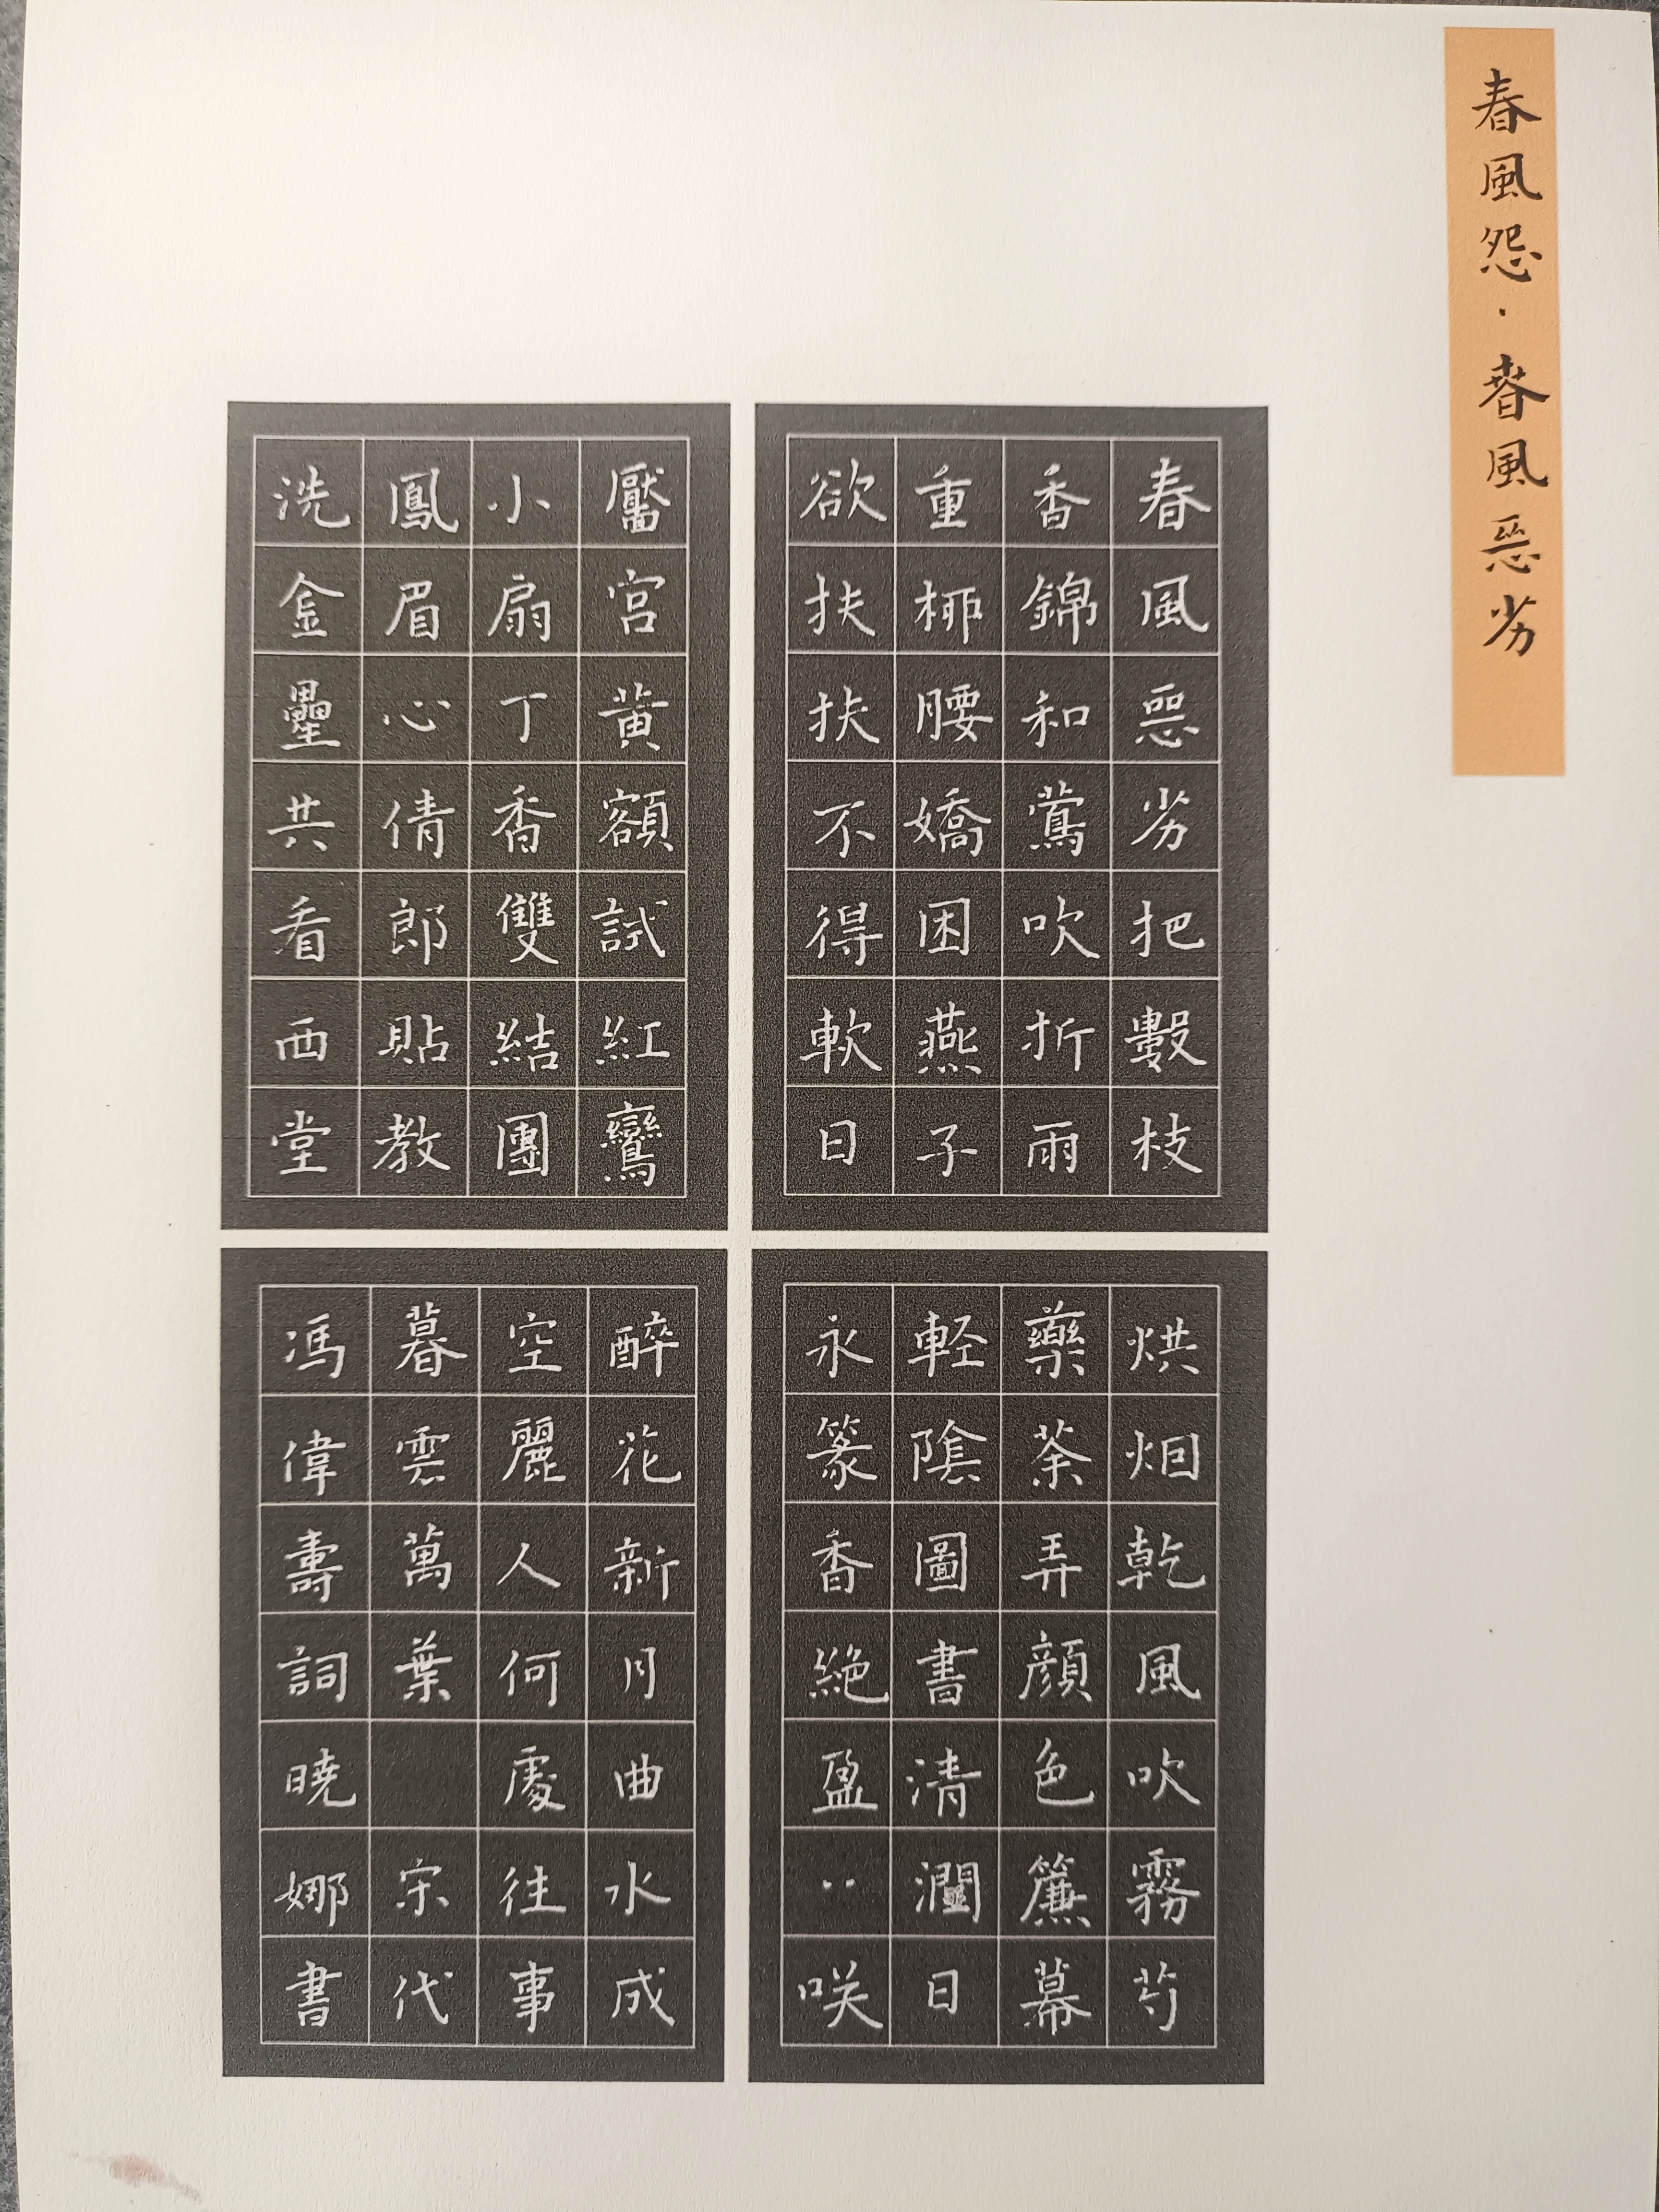 春風怨·春風惡劣
春風惡劣把數枝
香錦和鶯吹折雨
重栁腰嬌困燕子
欲扶扶不得軟日
烘烟乾風吹霧芍
藥荼弄顔色簾幕
軽陰圖書清潤日
永篆香絶盈〻咲
靨宮黄額試紅鸞
小扇丁香雙結團
鳳眉心倩郎貼教
洗金罍共看西堂
醉花新月曲水成
空麗人何處往事
暮雲萬葉 宋代
馮偉壽詞暁娜書